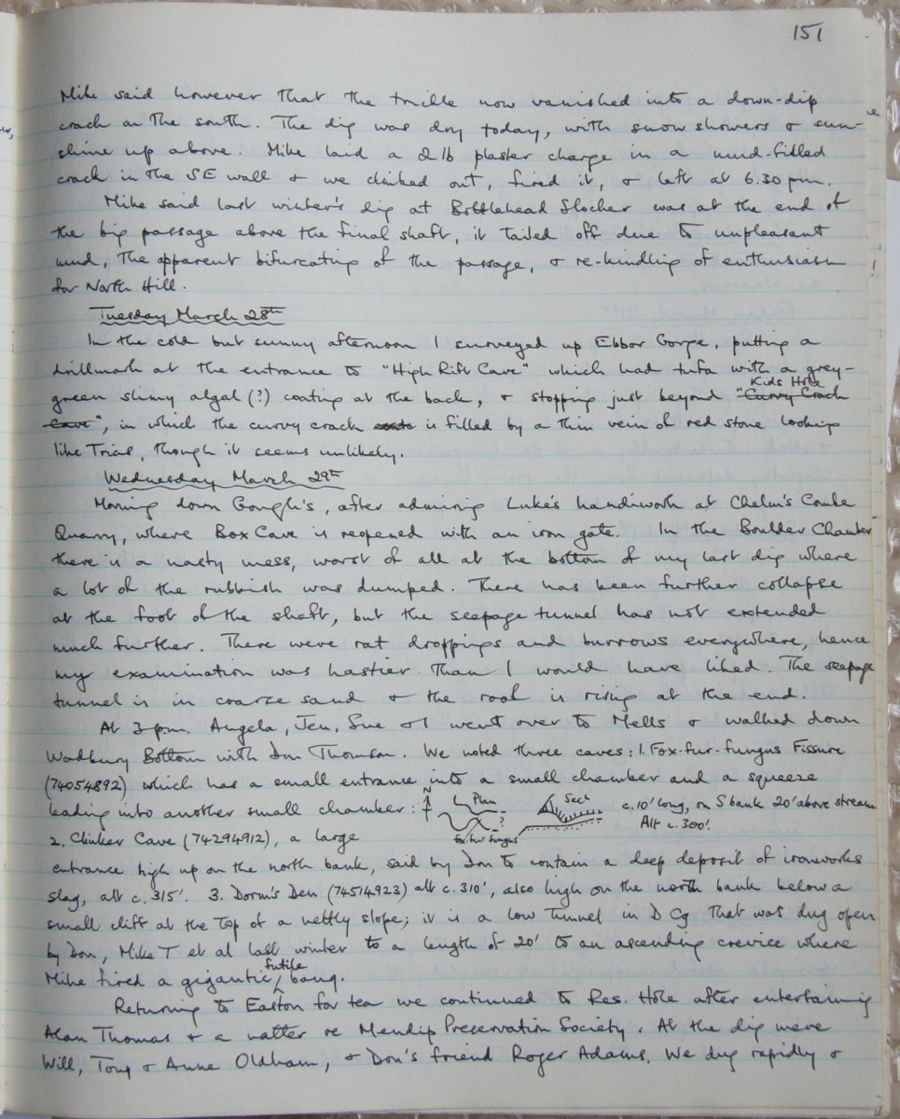 151
Mike said however that the trickle now vanished into a down-dip
crack on the south. The dig was dry today, with snow showers & sun-
shine up above. Mike laid a 2 lb plaster charge in a mud-filled
crack in the SE wall & we climbed out, fired it, & left at 6.30 pm.
Mike said last winter's dig at Bottlehead Slocker was at the end of
the big passage above the final shaft, it tailed off due to unpleasant
mud, the apparent bifurcating of the passage, & re-kindling of enthusiasm
for North Hill.
Tuesday March 28th
In the cold but sunny afternoon I surveyed up Ebbor Gorge, putting a
drillmark at the entrance to "High Rift Cave" which had tufa with a grey-
green slimy algal (?) coating at the back, & stopping just beyond "Curvy Crack Kids Hole
Cave", in which the curvy crack is filled by a thin vein of red stone looking
like Trias, though it seems unlikely.
Wednesday March 29th
Morning down Gough's, after admiring Luke's handiwork at Chelm's Combe
Quarry, where Box Cave is reopened with an iron gate. In the Boulder Chamber
there is a nasty mess, worst of all at the bottom of my last dig where
a lot of the rubbish was dumped. There has been further collapse
at the foot of the shaft, but the seepage tunnel has not extended
much further. There were rat droppings and burrows everywhere, hence
my examination was hastier than I would have liked. The seepage
tunnel is in coarse sand & the roof is rising at the end.
At 3 pm. Angela, Jen, Sue & I went over to Mells & walked down
Wadbury Bottom with Don Thomson. We noted three caves: 1. Fox-fur-fungus Fissure
(74054892) which has a small entrance into a small chamber and a squeeze
leading into another small chamber: N Plan ? fox fur fungus Sect c. 10' long, on S bank 20' above stream
Alt c. 300'.
2. Clinker Cave (74294912), a large
entrance high up on the north bank, said by Don to contain a deep deposit of ironworks
slag, alt c. 315'. 3. Dorm's Den (74514923) alt c. 310', also high on the north bank below a
small cliff at the top of a nettly slope; it is a low tunnel in D Cg that was dug open
by Don, Mike T et al last winter to a length of 20' to an ascending crevice where
Mike fired a gigantic futile bang.
Returning to Easton for tea we continued to Res. Hole after entertaining
Alan Thomas & a natter re Mendip Preservation Society. At the dig were
Will, Tony & Anne Oldham, & Don's friend Roger Adams. We dug rapidly &